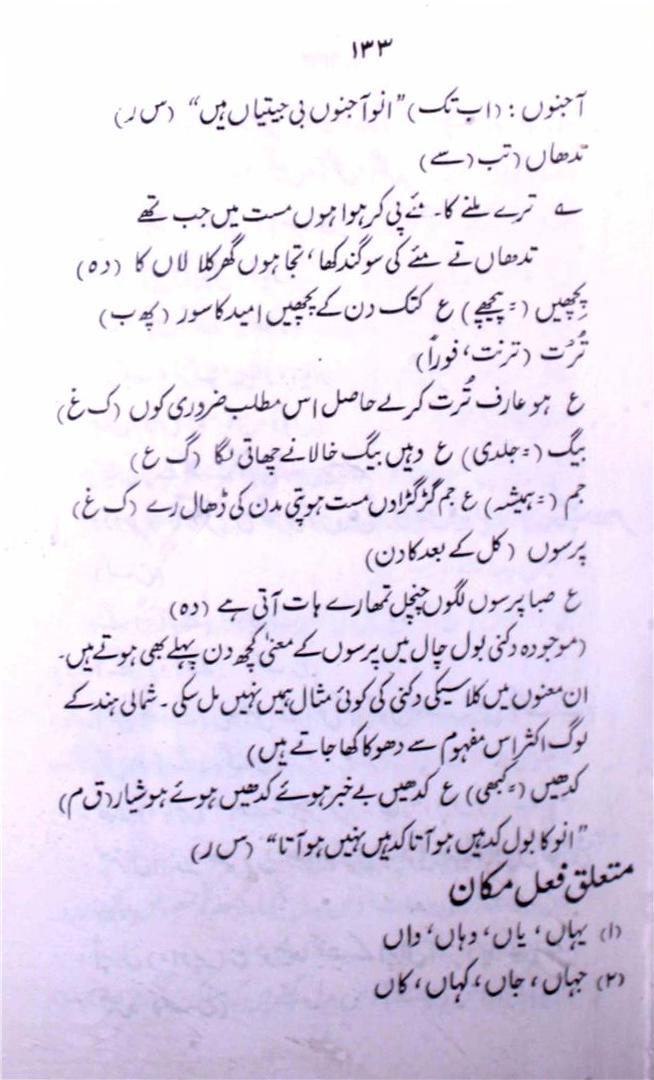 ۱۳۳
آجنوں : (اب تک) ”انو آجنوں بی جیتیاں ہیں“ (س ر)
تدھاں (تب (سے)
؎ ترے ملنے کا۔ مئے پی کر ہوا ہوں مست میں جب تھے
تدھاں تے مئے کی سوگند کھا، تجا ہوں گھر کلالاں کا (دہ)
پچھیں (= پیچھے) ع کتک دن کے پچھیں امید کا سور (پھ ب)
تُرَت (ترنت، فوراً)
ع ہو عارف تُرت کرلے حاصل اس مطلب ضروری کوں (ک غ)
بیگ (= جلدی) ع وہیں بیگ خالا نے چھاتی لگا (گ ع)
جم (= ہمیشہ) ع جم گڑگڑا دں مست ہو پتی مدن کی ڈھال رے (ک غ)
پرسوں (کل کے بعد کا دن)
ع صبا پرسوں لگوں چنچل تمھارے ہات آتی ہے (دہ)
(موجودہ دکنی بول چال میں پرسوں کے معنیٰ کچھ دن پہلے بھی ہوتے ہیں۔
ان معنوں میں کلاسیکی دکنی کی کوئی مثال ہمیں نہیں مل سکی۔ شمالی ہند کے
لوگ اکثر اِس مفہوم سے دھوکا کھا جاتے ہیں)
کدھیں (= کبھی) ع کدھیں بے خبر ہوئے کدھیں ہوئے ہوشیار (ق م)
”انو کا بول کدہیں ہو آتا کدہیں نہیں ہو آتا“ (س ر)
متعلق فعل مکان
(۱) یہاں، یاں، وہاں، واں
(۲) جہاں، جاں، کہاں، کاں